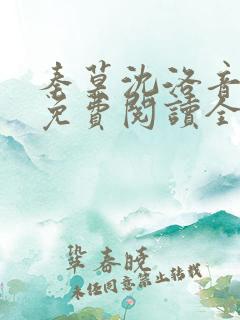 秦墓沈洛音
免費閱讀全
鞏春晚
未经同意禁止转载